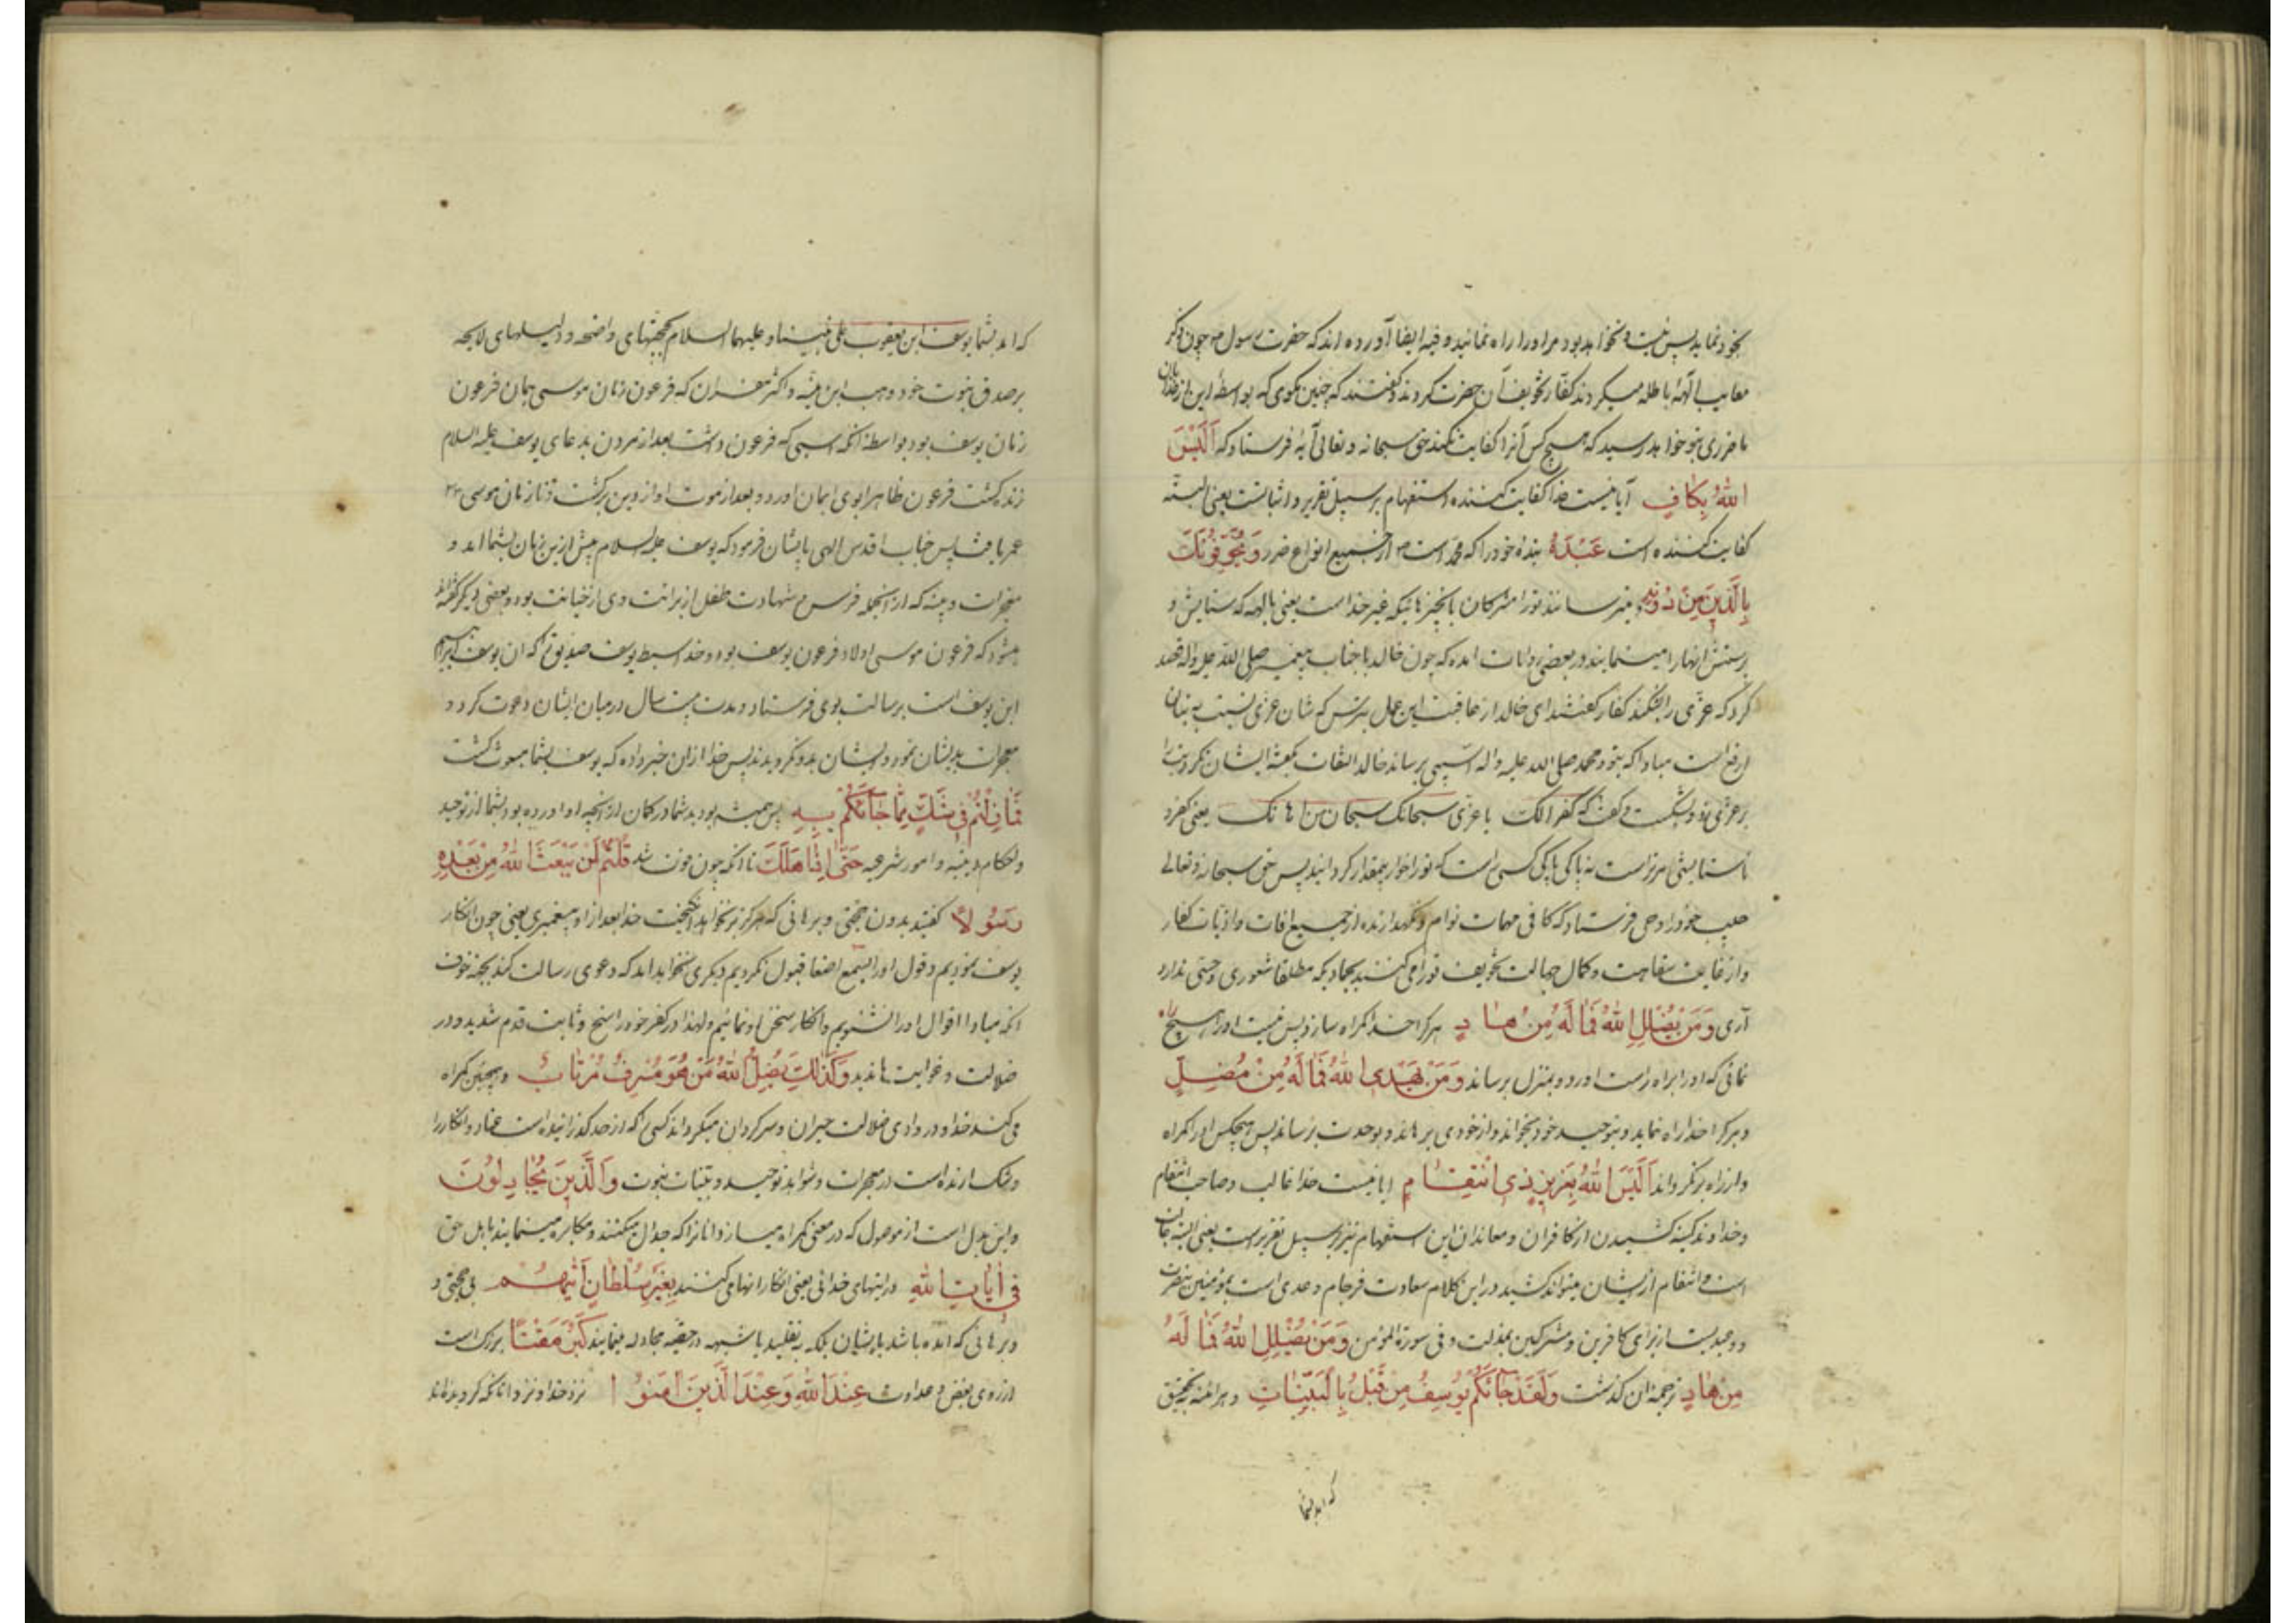 بخود نماید پس نیست و نخواهد بود مر او را راه نمانید و فیه ایضا آورده اند که حضرت رسول ص چون ذکر
معایب آلههٔ باطله میکردند کفار تخویف آن حضرت کردند و گفتند که چنین مکوی که بواسطهٔ این از خدایان
ما ضرری بتو خواهد رسید که هیچ کس آنرا کفایت نکند حق سبحانه و تعالی آیه فرستاد که اَلَیْسَ
اللهُ بِکافٍ آیا نیست خدا کفایت کننده استفهام بر سبیل تقریر و اثباتست یعنی البته
کفایت کننده است عَبْدَهُ بنده خود را که محمد است ص از جمیع انواع ضرر وَ یُخَوِّفُونَکَ
بِالَّذِینَ مِنْ دُونِهِ و میترسانند تو را مشرکان بانچیزهائیکه غیر خداست یعنی بالهه که ستایش و
پرستش آنها را مینمایند و در بعضی روایات امده که چون خالد با جناب پیغمبر صلی الله علیه و اله قصد
کرد که عزی را بشکند کفار گفتند ای خالد از عاقبت این عمل بترس که شان عزی نسبت به بتان
ارفع است مبادا که بتو و محمد صلی الله علیه و اله آسیبی برساند خالد التفات بگفته ایشان نکرد و تبر را
بر عزی زد و بشکست و گفت که کفرا لک یا عزی سبحانک سبحان من اهانک یعنی کفر و
ناستایشی مر تراست نه پاکی پاکی کسی راست که تو را خوار و بیمقدار کردانید پس حق سبحانه و تعالی
حبیب خود را وحی فرستاد که کافی مهمات توام و نکهدارنده از جمیع افات و اذیات کفار
و از غایت سفاهت و کمال جهالت تخویف تو را می کنند بجمادیکه مطلقا شعوری و حسی ندارد
آری وَ مَنْ یُضْلِلِ اللهُ فَما لَهُ مِنْ هادٍ هر کرا خدا کمراه سازد پس نیست او را هیچ راه
نمائی که او را براه راست اورد و بمنزل برساند وَ مَنْ یَهْدِی اللهُ فَما لَهُ مِنْ مُضِلٍّ
و هر کرا خدا راه نماید و بتوحید خود بخواند و از خودی برهاند و بوحدت برساند پس هیچکس او را کمراه
و از راه برنکرداند اَلَیْسَ اللهُ بِعَزِیزٍ ذِی انْتِقامٍ ایا نیست خدا غالب و صاحب انتقام
و خداوند کینه کشیدن از کافران و معاندان این استفهام نیز بر سبیل تقریر است یعنی البته غالب
است و انتقام از ایشان میتواند کشید در این کلام سعادت فرجام وعدی است بمؤمنین بنصرت
و وعیدیست از برای کافرین و مشرکین بمذلت و فی سورة المؤمن وَ مَنْ یُضْلِلِ اللهُ فَما لَهُ
مِنْ هادٍ ترجمه ان کذشت وَ لَقَدْ جاءَکُمْ یُوسُفُ مِنْ قَبْلُ بِالْبَیِّناتِ و هر اینه بتحقیق
که امد بشما
که امد بشما یوسف ابن یعقوب علی نبینا و علیهما السلام بحجتهای واضحه و دلیلهای لایحه
بر صدق نبوت خود وهب ابن منبه و اکثر مفسران که فرعون زمان موسی همان فرعون
زمان یوسف بود بواسطه انکه اسبی که فرعون داشت بعد از مردن بدعای یوسف علیه السلام
زنده کشت فرعون ظاهرا بوی ایمان اورد و بعد از موت او از دین برکشت و تا زمان موسی
عمر یافت پس جناب اقدس الهی بایشان فرمود که یوسف علیه السلام پیش ازین زمان بشما امد و
معجزات و بینه که از انجمله فرس و شهادت طفل از برائت وی از خیانت بود و بعضی دیگر گفته اند
میشود که فرعون موسی اولاد فرعون یوسف بود و خدا سبط یوسف صدیق را که ان یوسف ابن ابراهیم
ابن یوسف است برسالت بوی فرستاد و مدت بیست سال درمیان ایشان دعوت کرد و
معجزات بدیشان نمود و ایشان بدو نکرویدند پس خدا ازان خبر داده که یوسف بشما مبعوث کشت
فَما زِلْتُمْ فِی شَکٍّ مِمّا جاءَکُمْ بِهِ پس همیشه بودید شما در کمان از انچه او اورده بود بشما از توحید
و احکام دینیه و امور شرعیه حَتّی اِذا هَلَکَ تا انکه چون فوت شد قُلْتُمْ لَنْ یَبْعَثَ اللهُ مِنْ بَعْدِهِ
رَسُولًا گفتید بدون حجتی و برهانی که هرکز برنخواهد انکیخت خدا بعد از او پیغمبری یعنی چون انکار
یوسف نمودیم و قول او را بسمع اصغا قبول نکردیم دیکری نخواهد امد که دعوی رسالت کند بجهة خوف
انکه مبادا اقوال او را نشنویم و انکار سخن او نمائیم و لهذا در کفر خود راسخ و ثابت قدم شدید و در
ضلالت و غوایت ماندید وَ کَذلِکَ یُضِلُّ اللهُ مَنْ هُوَ مُسْرِفٌ مُرْتابٌ و همچنین کمراه
می کند خدا و در وادی ضلالت حیران و سرکردان میکرداند کسی را که از حد کذرانیده است عناد و انکار را
و شک ارنده است در معجزات و شواهد توحید و بینات نبوت وَ الَّذِینَ یُجادِلُونَ
و این بدل است از موصول که در معنی کمراه میسازد انانرا که جدال میکنند و مکابره مینمایند با اهل حق
فِی آیاتِ اللهِ در ایتهای خدائی یعنی انکار انها می کنند بِغَیْرِ سُلْطانٍ اَتیهُمْ بی حجتی و
و برهانی که امده باشد بایشان بلکه به تقلید یا شبهه در حقیه مجادله مینمایند کَبُرَ مَقْتًا بزرک است
از روی بغض و عداوت عِنْدَ اللهِ وَ عِنْدَ الَّذِینَ آمَنُوا نزد خدا و نزد انانکه کرویده اند